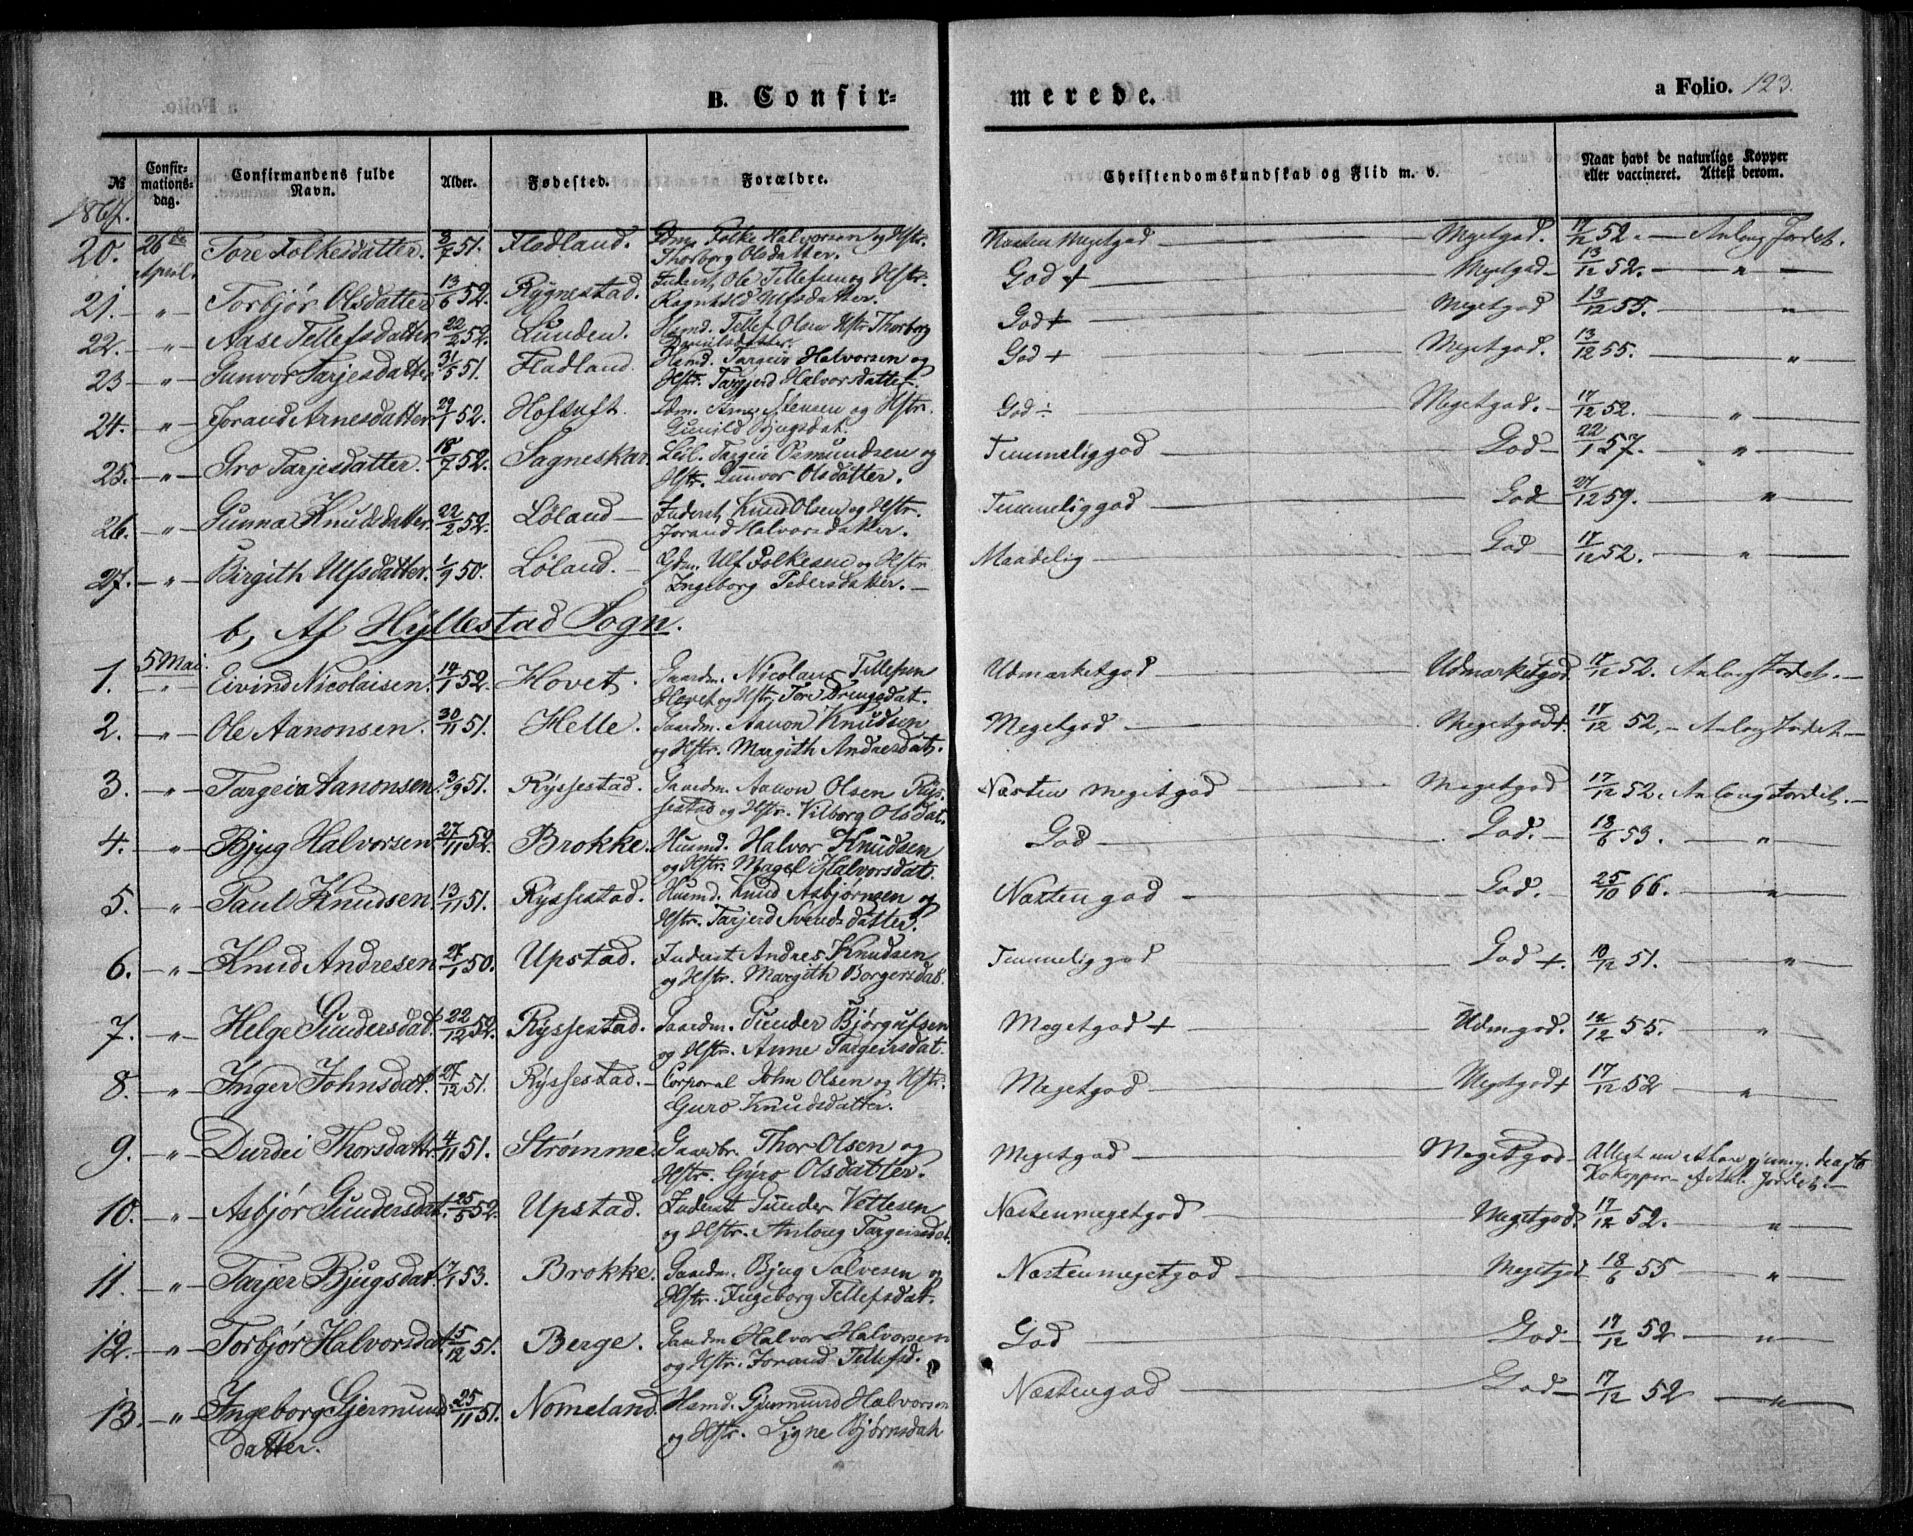 B. Confir-
merede.
a Folio. 123.
№
Confir-
mations-
dag.
Confirmandens fulde
Navn.
Alder.
Fødested.
Forældre.
Christendomskundskab og Flid m. v.
Naar havt de naturlige Kopper
eller vaccineret. Attest derom.
1867.
20. 26de April. Tore Folkesdatter. 3/7 51. Fladland. Gdm. Folke Halvorsen og Hstr.
Thorborg Olsdatter.
Næsten Megetgod — Megetgod. 17/12 52. — Anlaug Jordet.
21. — " — Torbjør Olsdatter 13/6 52. Rygnestad. Inderst Ole Tellefsen og Hstr.
Ragnhild Ulfsdatter.
God + — Megetgod — 13/12 52. — " —
22. — " — Aase Tellefsdatter 22/2 52. Lunden. Hsmd. Tellef Olsen Hstr. Thorborg
Danielsdatter.
God + — Megetgod 13/12 55. — "
23 — " — Gunvor Tarjesdatter 31/5 51. Fladland. Hsmd. Targeir Halvorsen og
Hstr. Targjerd Halvorsdatter.
God + — Megetgod. 13/12 55. — "
24. — " — Jorand Arnesdatter 29/1 52. Hoftuft. Gdm. Arne Stensen og Hstr.
Gunild Bjugsdat.
God ÷ — Megetgod. — 17/12 52. — "
25. — " — Gro Tarjesdatter. 18/7 52. Sagneskar. Leil. Targeir Osmundsen og
Hstr. Gunvor Olsdatter.
Temmeliggod — God — 22/1 57. — "
26. — " — Gunna Knudsdatter 22/2 52. Løland — Inderst, Knud Olsen og Hstr.
Jorand Halvorsdatter.
Temmeliggod — God 27/12 59. — "
27. — " — Birgith Ulfsdatter. 1/9 50. Løland. — Gdm. Ulf Folkesen og Hstr
Ingeborg Pedersdatter. —
Maadelig — God 17/12 52. — "
b, Af Hyllestad Sogn.
1. 5 Mai. — " — Eivind Nicolaisen. 14/1 52. Hovet. Gaardm. Nicolaus Tellefsen
Hovet og Hstr. Tore Drengsdat.
Udmarketgod — Udmarketgod 17/12 52. Anlaug Jordet. —
2. — " — Ole Aanonsen. 30/11 51. Helle. Gaardm. Aanon Knudsen
og Hstr. Margith Andresdat.
Megetgod — Megetgod + 17/12 52, — Anlaug Jordet —
3. — " — Targeir Aanonsen. 3/9 51. Ryssestad. Gaardm. Aanon Olsen Rys-
sestad og Hstr. Vilborg Olsdat.
Næsten megetgod — Megetgod 17/12 52. Anlaug Jordet. —
4. — " — Bjug Halvorsen 27/11 52. Brokke. Husmd. Halvor Knudsen
og Hstr. Magel Halvorsdat.
God — God. — 18/6 53. — " —
5. " — Paul Knudsen. 13/11 51. Ryssestad. Husmd. Knud Asbjørnsen og
Hstr. Tarjerd Svendsdatter.
Næsten god — God. — 25/10 66. — "
6. — " — Knud Andresen 27/1 50. Upstad. Inderst Andres Knudsen
og Hstr. Margith Borgersdat.
Temmeliggod God +. 10/12 51. — "
7. " — Helge Gundersdat. 22/12 52. Ryssestad. Gaardm. Gunder Bjørgufsen
og Hstr. Anne Targeirsdat.
Megetgod + — Udmgod. 12/12 55. — "
8. " — Inger Johnsdat. 27/12 51. Ryssestad. — Corporal John Olsen og Hstr.
Guro Knudsdatter.
Megetgod — Megetgod + 17/12 52 — "
9. — " — Durdei Thorsdatter 4/11 51. Strømme. Gaardbr. Thor Olsen og
Hstr. Gyro Olsdatter.
Megetgod — Megetgod —
Kokopper — Jordet. —
10. — " — Asbjør Gundersdat. 25/5 52. Upstad. Inderst Gunder Vetlesen
og Hstr. Anlaug Targeirsdat.
Næstenmegetgod — Megetgod 17/12 52. — "
11. — " — Tarjer Bjugsdat. 17/1 53. Brokke. Gaardm. Bjug Salvesen og
Hstr. Ingeborg Tellefsdat.
Næstenmegetgod — Megetgod 18/6 55 — "
12. — " — Torbjør Halvorsdat 15/12 51. Berge. Gaardm Halvor Halvorsen
og Hstr. Jorand Tellefsd.
God — God — 17/12 52 — "
13. — " — Ingeborg Gjermund- 25/11 51. Nomeland. Hsmd. Gjermund Halvorsen
datter. og Hstr. Signe Bjørnsdat
Næstengod — God — 17/12 52 — "